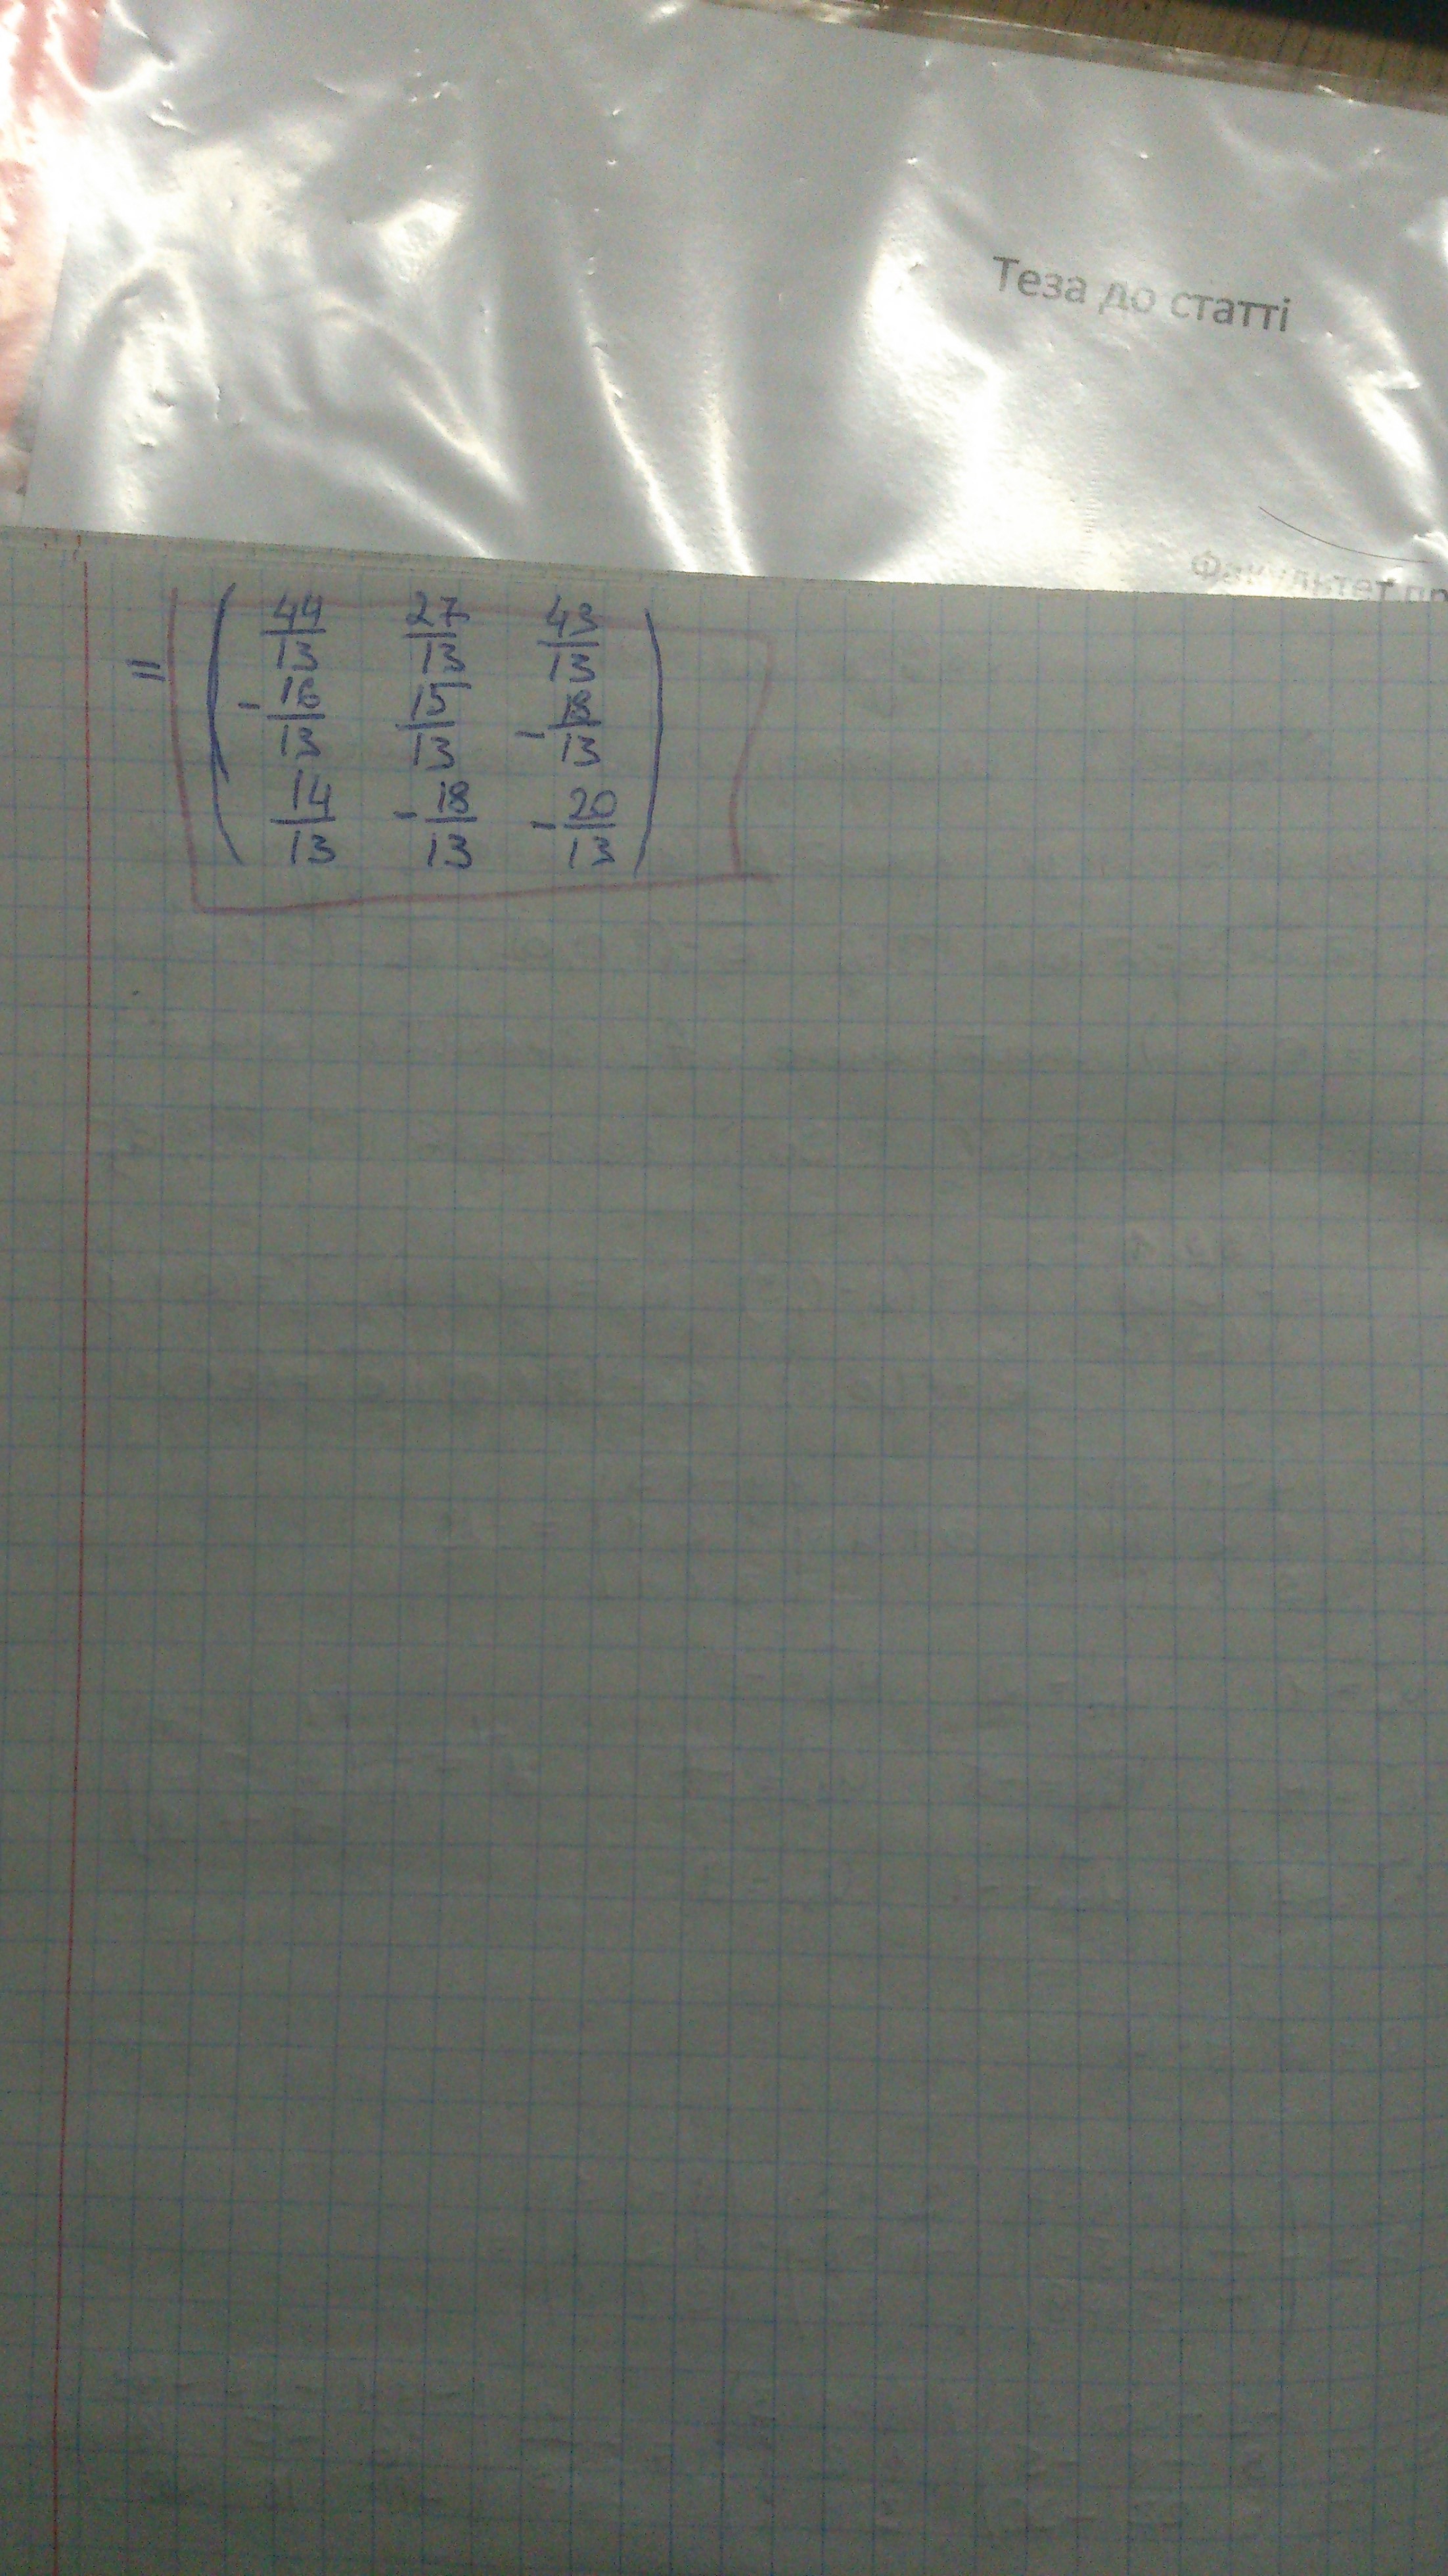 Теза до статті
Факультет пр
= ( 44/13 27/13 43/13
-16/13 15/13 -18/13
14/13 -18/13 -20/13 )